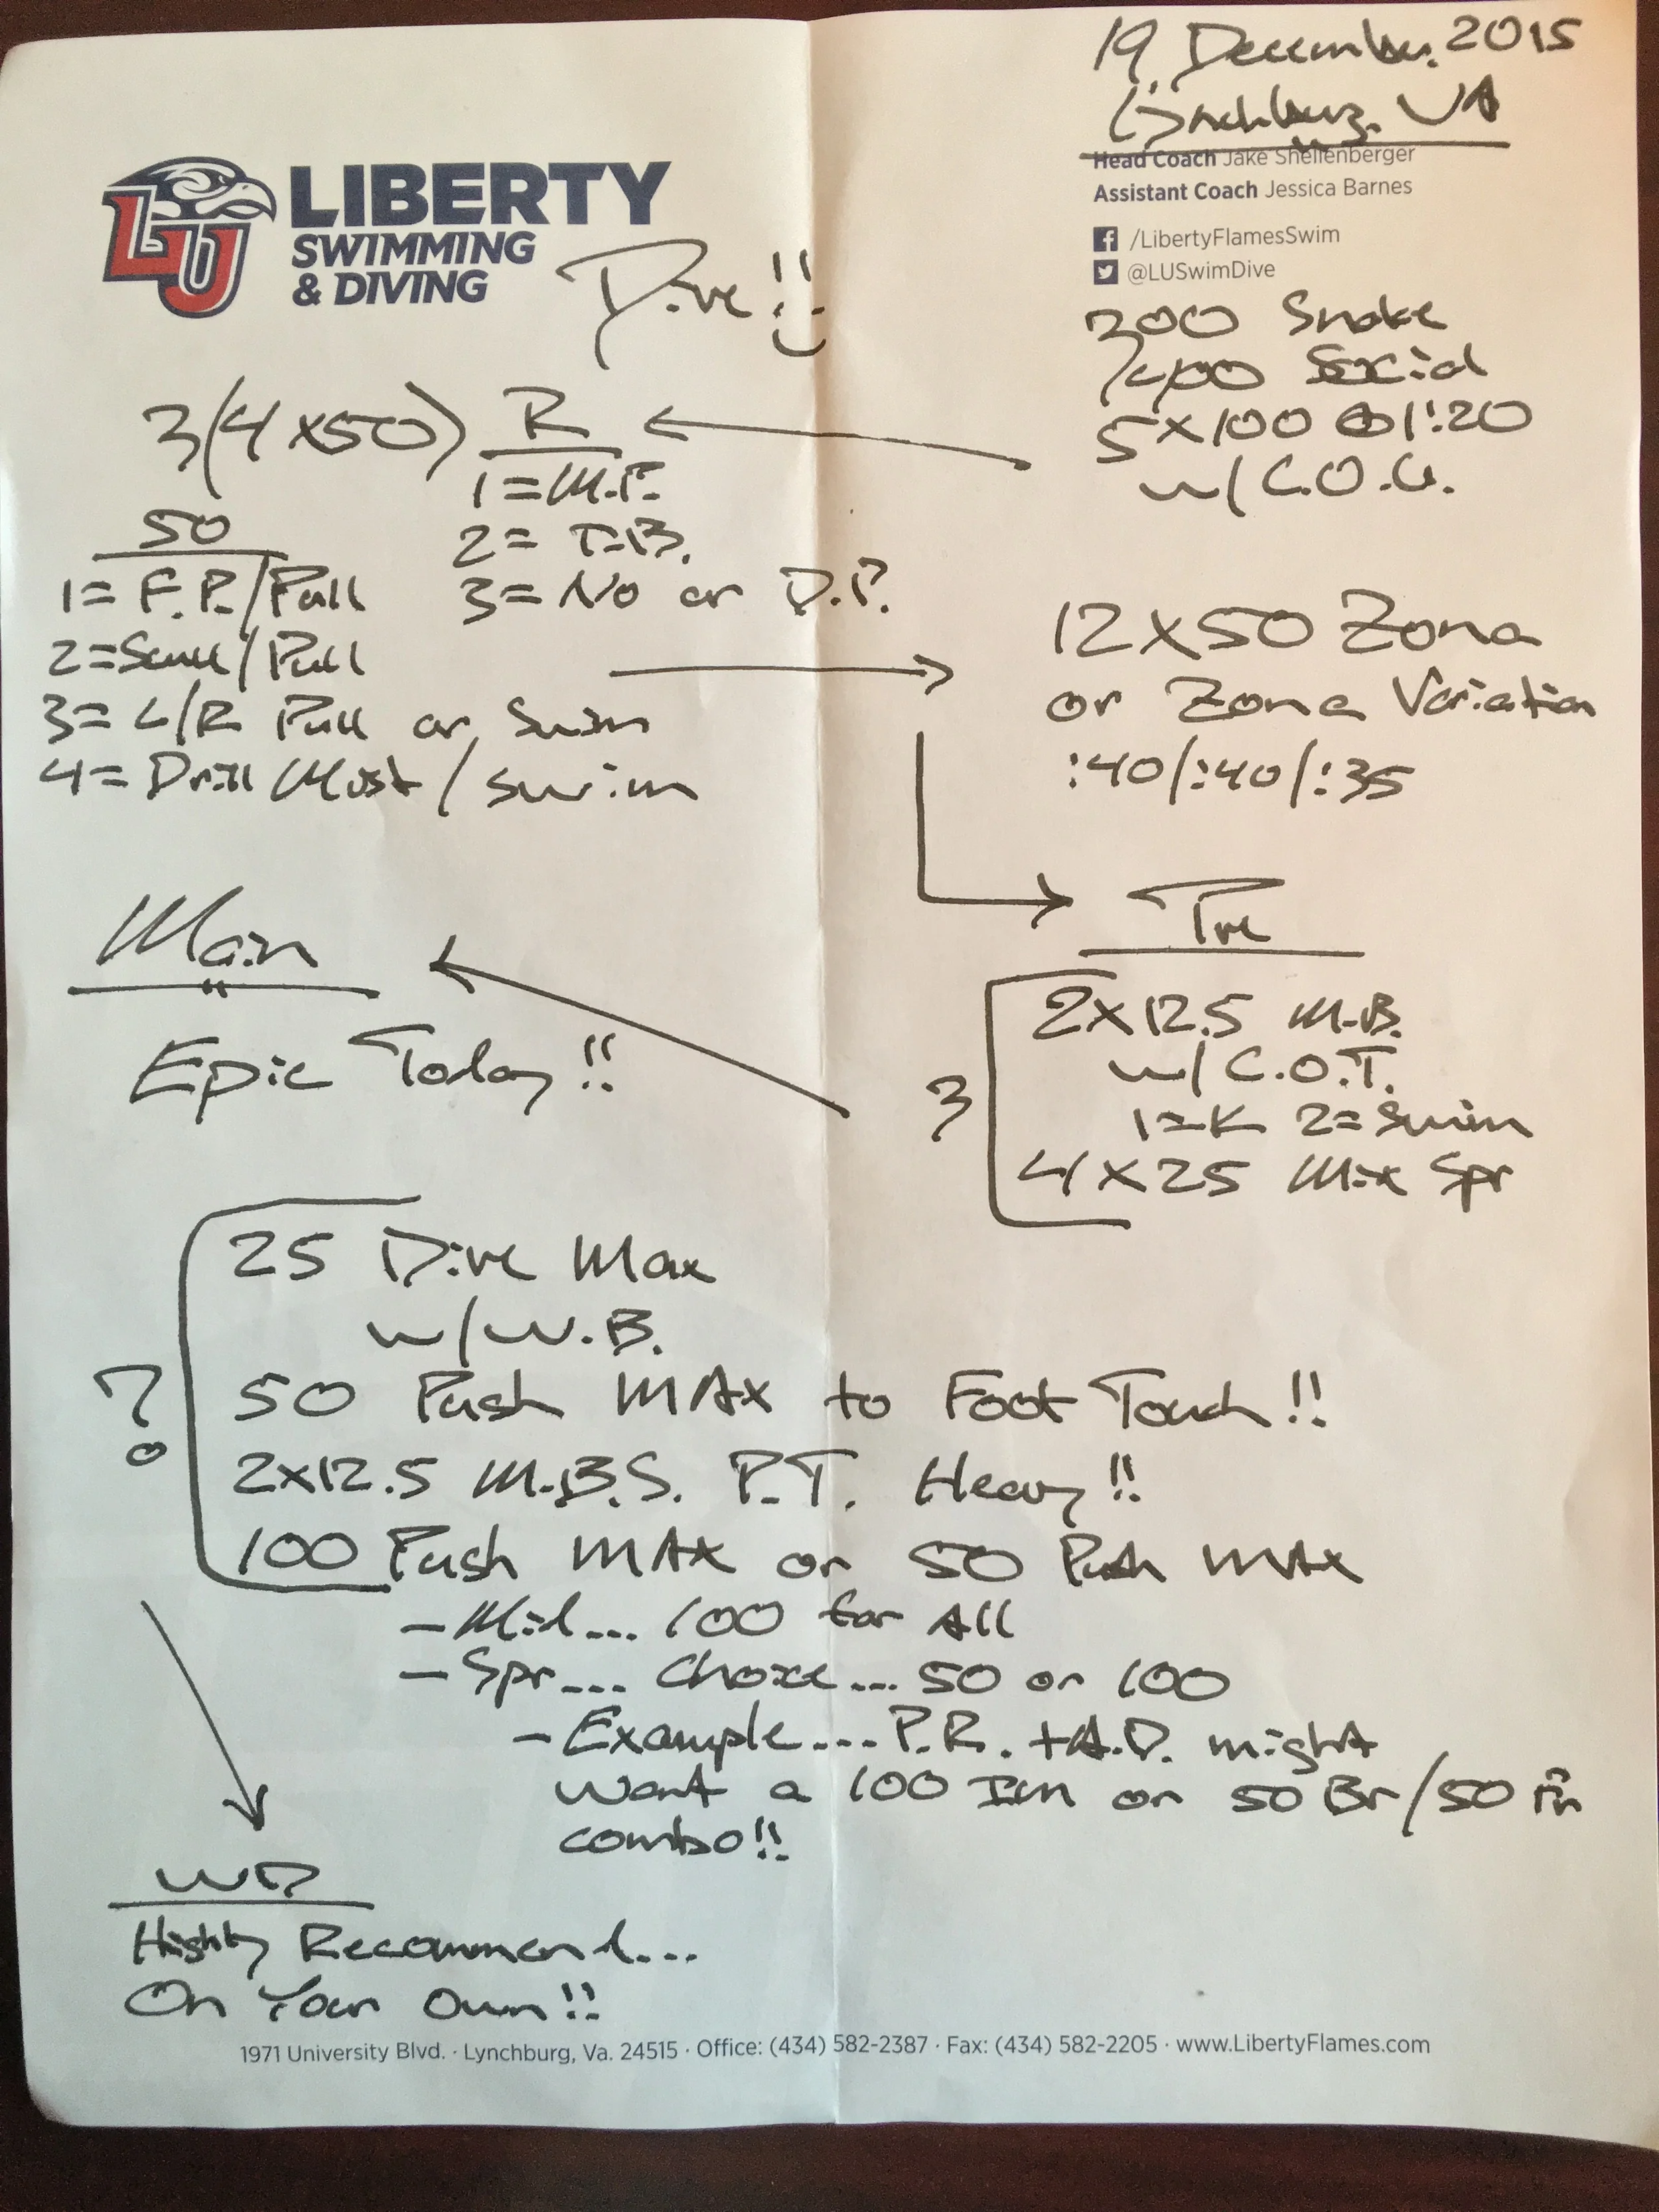 19 December 2015
Lynchburg, VA
Head Coach Jake Shellenberger
Assistant Coach Jessica Barnes
/LibertyFlamesSwim
@LUSwimDive
LU LIBERTY
SWIMMING
& DIVING
Dive!!
300 Snake
400 Social
5x100 @ 1:20
w/ C.O.G.
3(4x50) R
1=M.P.
2= T.B.
3= No or D.P.
50
1= F.P./Pull
2=Scull/Pull
3= L/R Pull or Swim
4= Drill Most/swim
12x50 Zona
or Zona Variation
:40/:40/:35
Pre
3
2x12.5 M.B.
w/ C.O.T.
1=K 2=Swim
4x25 Mix Spr
Main
Epic Today!!
?
25 Dive Max
w/ W.B.
50 Push MAX to Foot Touch!!
2x12.5 M.B.S. P.T. Heavy!!
100 Push MAX or 50 Push MAX
- Mid... 100 for All
- Spr... Choice... 50 or 100
- Example.... P.R. + A.D. might
want a 100 Im or 50 Br/50
combo!!
WD
Highly Recommend...
On Your Own!!
1971 University Blvd. · Lynchburg, Va. 24515 · Office: (434) 582-2387 · Fax: (434) 582-2205 · www.LibertyFlames.com